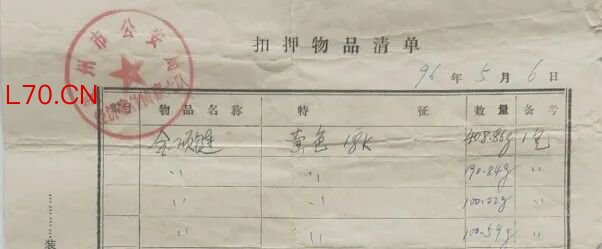 扣押物品清单
州市公安局
L70.CN
96年5月6日
编号 物品名称 特征 数量 备考
金项链 黄色 18K 408.86g 1包
〃 〃 190.84g 〃
〃 〃 100.22g 〃
〃 〃 100.59g 〃
装